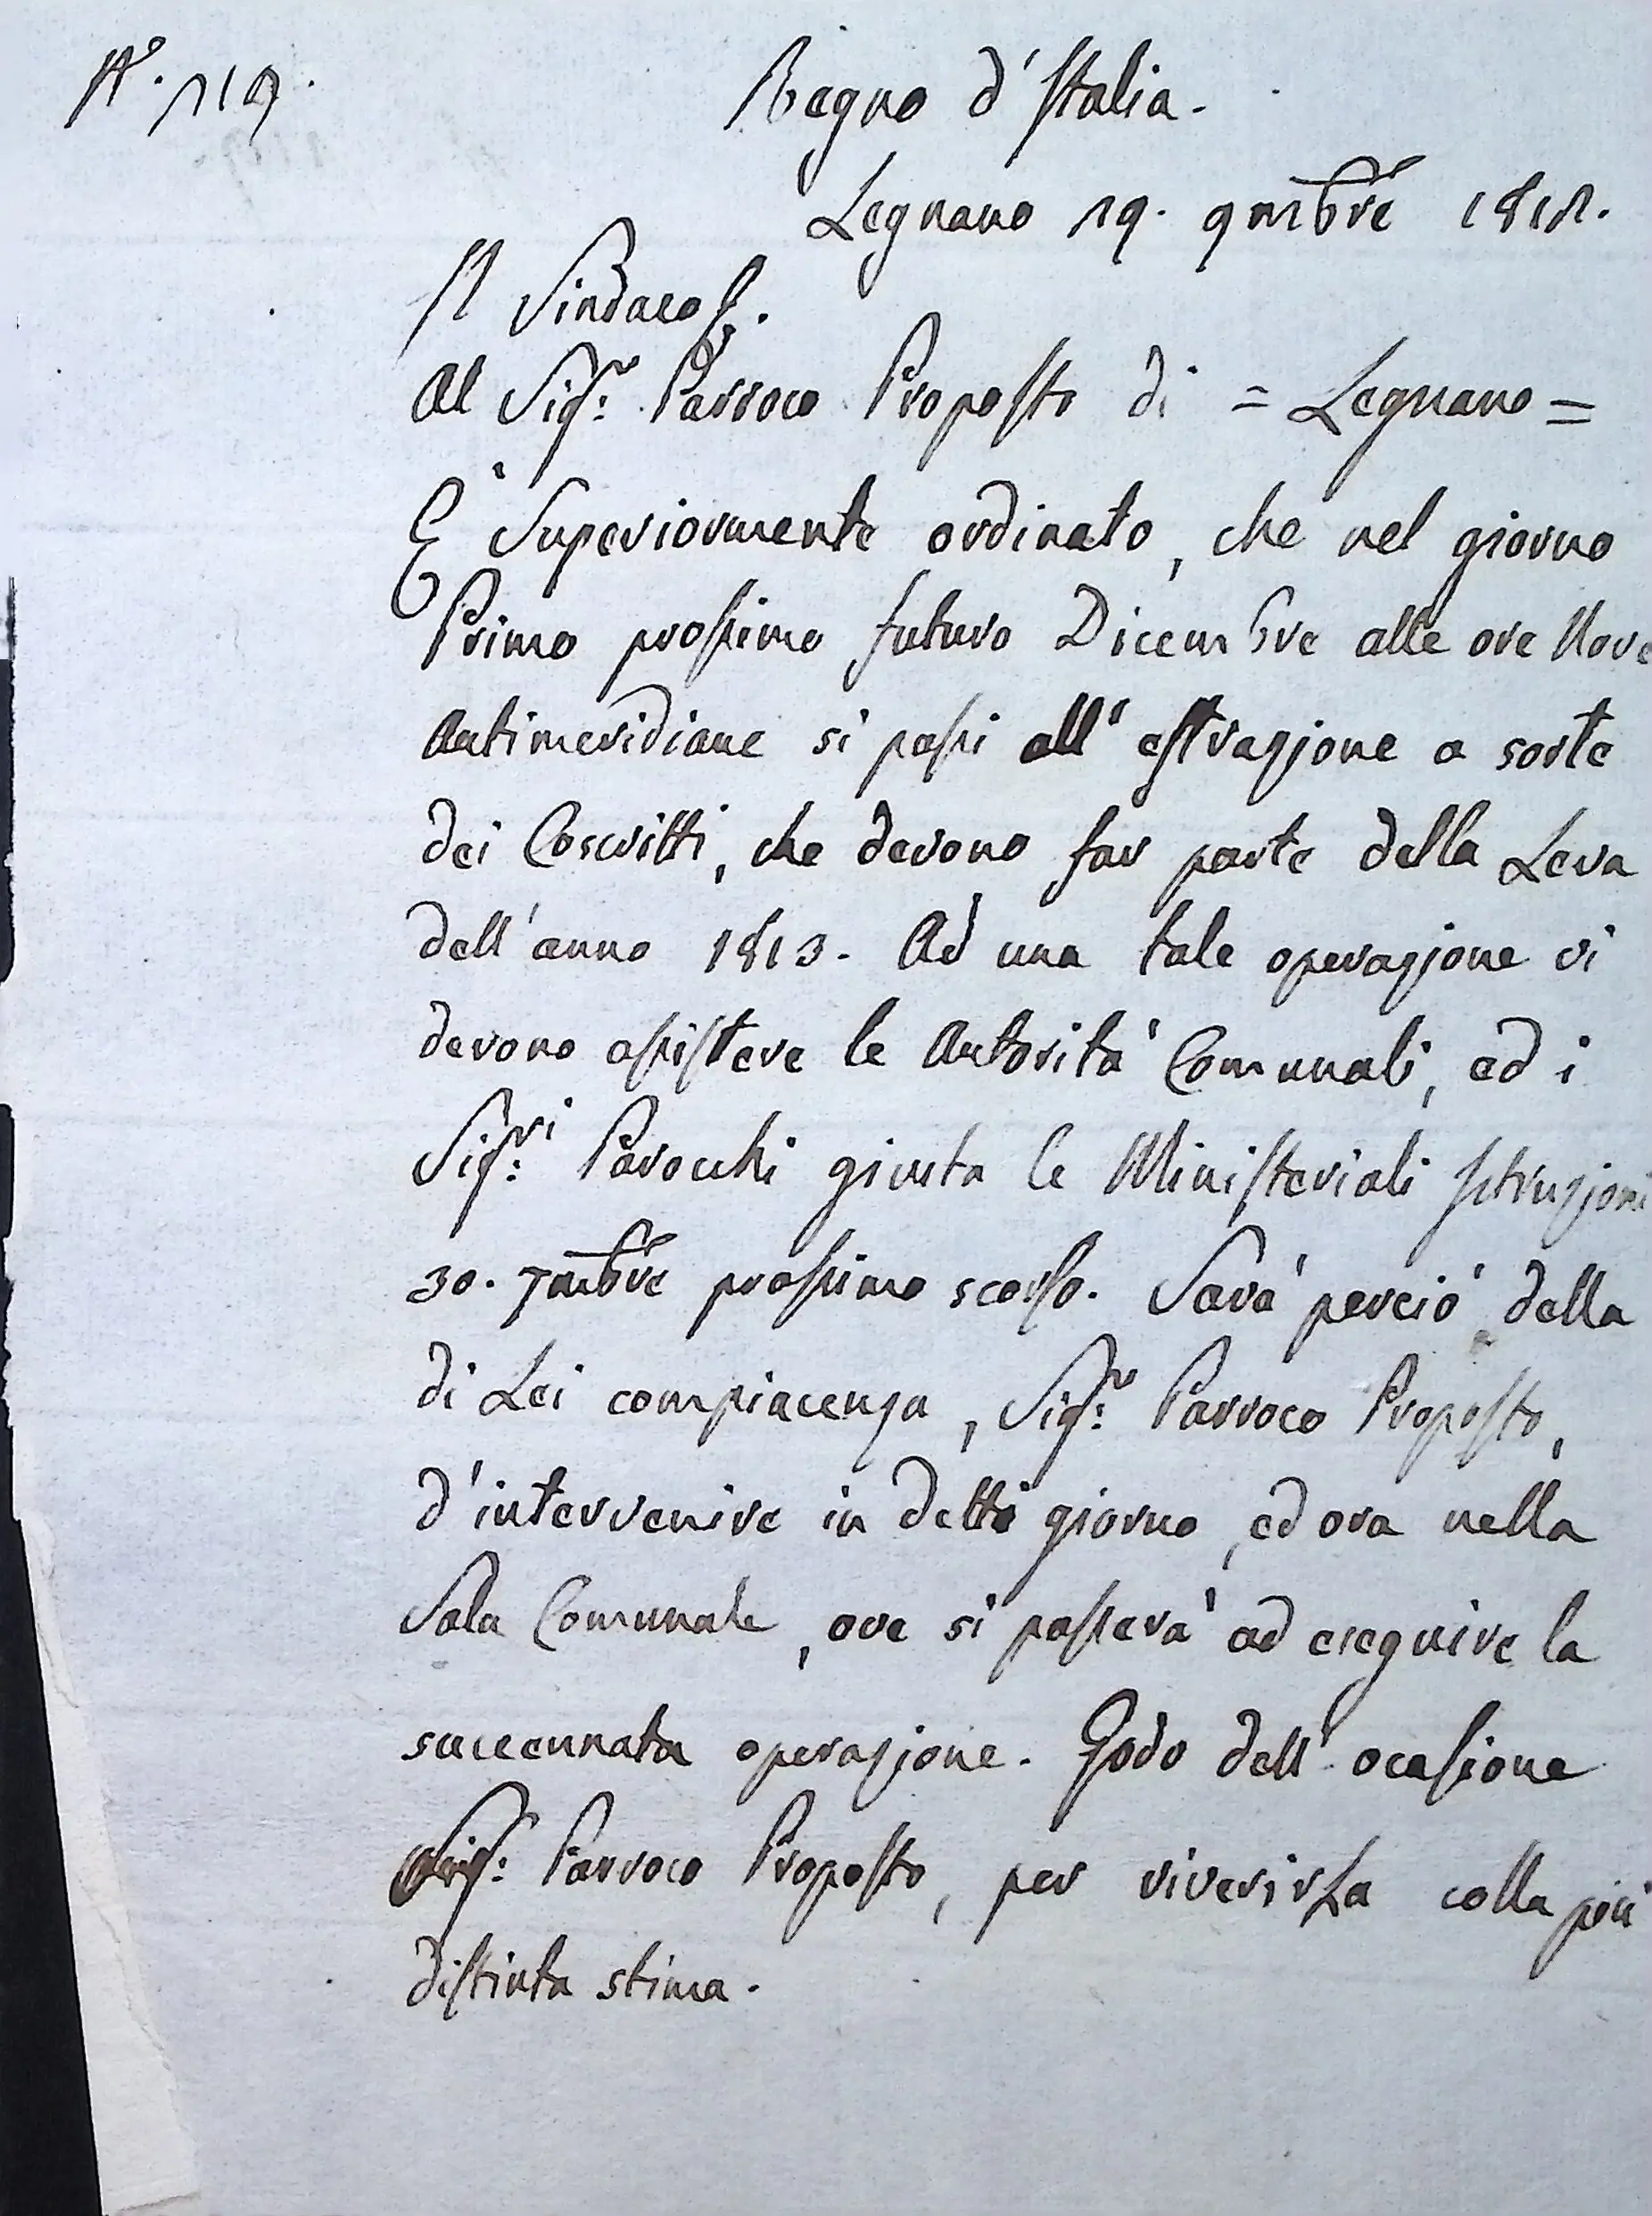 N.° 119.
Regno d'Italia.
Legnano 19. 9mbre 1812.
Il Sindaco
Al Sig.r Parroco Proposto di = Legnano =
E' Superiormente ordinato, che nel giorno
Primo prossimo futuro Dicembre alle ore Nove
Antimeridiane si passi all' estrazione a sorte
dei Coscritti, che devono far parte della Leva
dell'anno 1813. Ad una tale operazione vi
devono assistere le Autorità Comunali, ed i
Sig.ri Parocchi giusta le Ministeriali Istruzioni
30. 7mbre prossimo scorso. Sarà perciò della
di Lei compiacenza, Sig.r Parroco Proposto,
d'intervenire in detto giorno, ed ora nella
Sala Comunale, ove si passerà ad eseguire la
succennata operazione. Godo dell' ocasione
Sig.r Parroco Proposto, per riverirLa colla più
distinta stima.